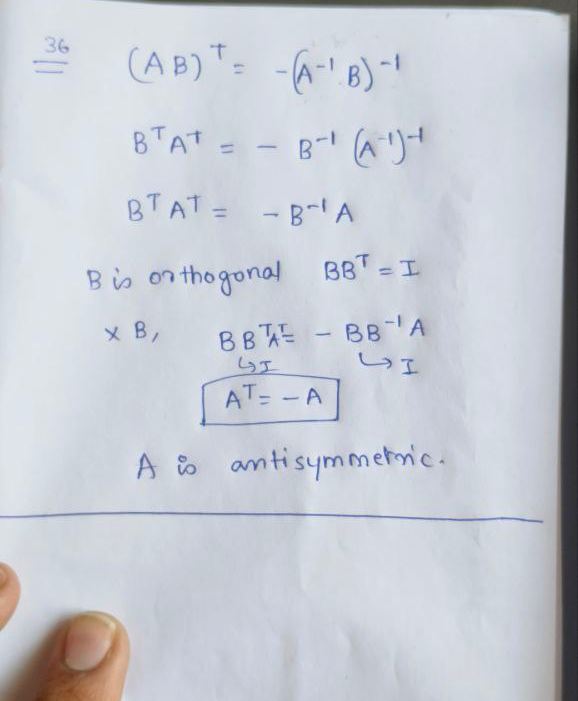 36
(AB)ᵀ = -(A⁻¹B)⁻¹
BᵀAᵀ = - B⁻¹ (A⁻¹)⁻¹
BᵀAᵀ = - B⁻¹A
B is orthogonal BBᵀ = I
× B, BBᵀAᵀ = - BB⁻¹A
↳I ↳I
Aᵀ = - A
A is antisymmetric.